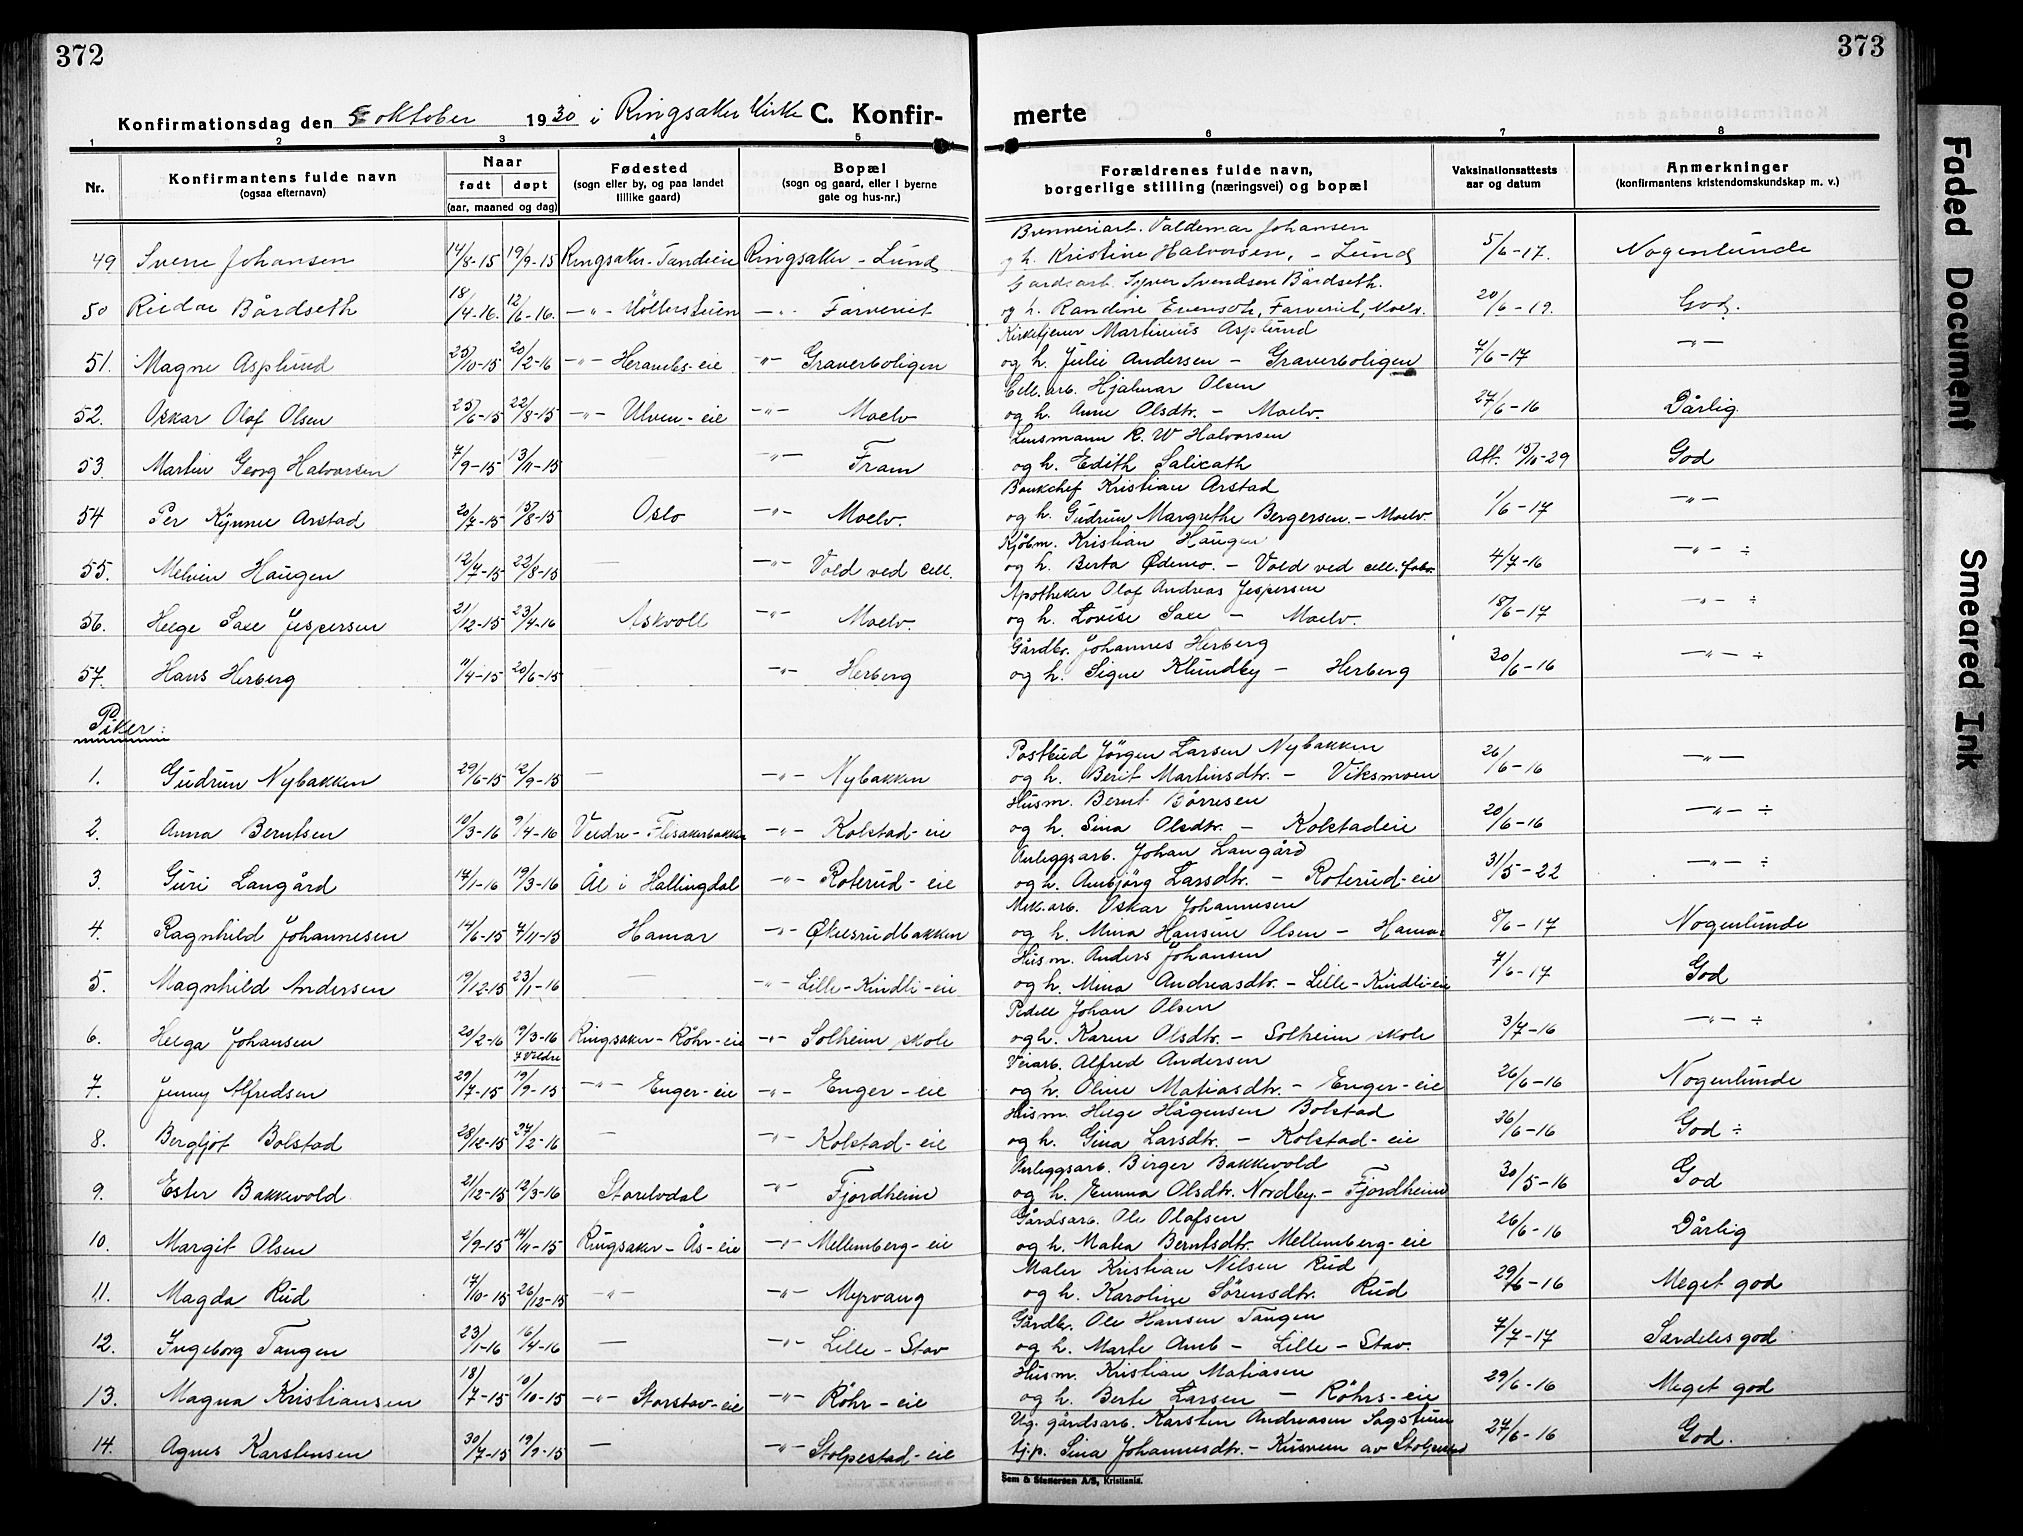 372
373
Konfirmationsdag den 5 oktober 1930 i Ringsaker Kirke C. Konfir-
merte
1 2 3 4 5 6 7 8
Nr.
Konfirmantens fulde navn
(ogsaa efternavn)
Naar
født døpt
(aar, maaned og dag)
Fødested
(sogn eller by, og paa landet
tillike gaard)
Bopæl
(sogn og gaard, eller i byerne
gate og hus-nr.)
Forældrenes fulde navn,
borgerlige stilling (næringsvei) og bopæl
Vaksinationsattests
aar og datum
Anmerkninger
(konfirmantens kristendomskundskap m. v.)
Brenneriarb. Valdemar Johansen
49 Sverre Johansen 14/8-15 19/9-15 Ringsaker - Tandeeie Ringsaker - Lund og h. Kristine Halvorsen, - Lund 5/6-17. Nogenlunde
Gardsarb. Syver Svendsen Bårdseth.
50 Reidar Bårdseth 18/4-16. 12/6-16. -"- Möllerstuen -"- Farveriet og h. Randine Evensdt., Farveriet, Moelv. 20/6-19. God.
Kirketjener Martinius Asplund
51. Magne Asplund 25/10-15 20/2-16 -"- Heravels-eie -"- Graverboligen og h. Julie Andersen - Graverboligen 7/6-17 -"-
Cell. arb. Hjalmar Olsen
52. Oskar Olaf Olsen 25/6-15 22/8-15 -"- Ulven-eie -"- Moelv og h. Anne Olsdtr. - Moelv. 27/6-16 Dårlig
Lensmann R. W Halvorsen
53. Martin Georg Halvorsen 7/9-15 13/11-15 — -"- Fram og h. Edith Salicath Att. 15/10-29 God
Bankchef Kristian Arstad
54 Per Kynnee Arstad 20/7-15 15/8-15 Oslo -"- Moelv. og h. Gudrun Margrethe Bergersen. - Moelv. 1/6-17 -"-
Kjøbm. Kristian Haugen
55. Melvin Haugen 12/7-15 22/8-15 — -"- Vold ved cell. og h. Berta Ødemo. - Vold ved cell. fabr. 4/7-16 -"- ÷
Apotheker Olaf Andreas Jespersen
56. Helge Saxe Jespersen 21/12-15 23/4-16 Askvoll -"- Moelv. og h. Lovise Saxe - Moelv. 18/6-17 -"- ÷
Gårdbr. Johannes Herberg
57. Hans Herberg 11/4-15 20/6-15 — -"- Herberg og h. Signe Klundby - Herberg 30/6-16 -"- ÷
Piker:
Postbud Jørgen Larsen Nybakken
1. Gudrun Nybakken 29/6-15 12/9-15 — -"- Nybakken og h. Berit Martinsdtr. - Viksmoen 26/6-16 -"-
Husm. Bernt Børresen
2. Anna Berntsen 10/3-16 9/4-16 Veldre - Flisakerbakken -"- Kolstad-eie og h. Sina Olsdtr. - Kolstadeie 20/6-16 -"- ÷
Anleggsarb. Johan Langård
3. Guri Langård 14/1-16 19/3-16 Ål i Hallingdal -"- Roterud-eie og h. Ambjörg Larsdtr. - Roterud-eie 31/5-22 -"- ÷
Mek. arb. Oskar Johannesen
4. Ragnhild Johannesen 14/6-15 7/11-15 Hamar -"- Økelsrudbakken og h. Mina Hansine Olsen - Hamar 8/6-17 Nogenlunde
Husm. Anders Johansen
5. Magnhild Andersen 19/12-15 23/1-16 — -"- Lille-Kindli-eie og h. Mina Andreasdtr. - Lille-Kindli-eie 7/6-17 God
Pedell Johan Olsen
6. Helga Johansen 20/2-16 19/3-16 Ringsaker - Röhr-eie -"- Solheim skole og h. Karen Olsdtr. - Solheim skole 3/7-16 -"- ÷
i Veldre
Veiarb. Alfred Andersen
7. Jenny Alfredsen 29/7-15 19/9-15 -"- Enger-eie -"- Enger-eie og h. Oline Matiasdtr. - Enger-eie 26/6-16 Nogenlunde
Husm. Helge Hågensen Bolstad
8. Bergljot Bolstad 28/12-15 27/2-16 — -"- Kolstad-eie og h. Gina Larsdtr. - Kolstad-eie 26/6-16 God ÷
Anleggsarb. Birger Bakkevold
9. Ester Bakkevold. 21/12-15 12/3-16 Storelvdal -"- Fjordheim og h. Emma Olsdtr. Nordby. - Fjordheim 30/5-16 God
Gårdsarb. Ole Olafsen
10. Margit Olsen 2/9-15 14/11-15 Ringsaker - Ås-eie -"- Mellemberg-eie og h. Matea Berntsdtr. Mellemberg-eie 26/6-16 Dårlig
Maler Kristian Nilsen Rud
11. Magda Rud 17/10-15 26/12-15 -"- -"- Myrvang og h. Karoline Sörensdtr. Rud 29/6-16 Meget god
Gårdbr. Ole Hansen Tangen
12. Ingeborg Tangen 23/1-16 16/4-16 — -"- Lille-Stav og h. Marte Amb - Lille-Stav. 7/7-17 Særdeles god
Husm. Kristian Matiasen
13. Magna Kristiansen 18/7-15 10/10-15 -"- Storstav-eie -"- Röhr-eie og h. Berte Larsen - Röhrs-eie 29/6-16 Meget god
Ug. gårdsarb. Karsten Andreasen Sagstuen
14. Agnes Karstensen 30/7-15 19/9-15 — -"- Stolpestad-eie tj.p. Sina Johannesdtr. - Kusveen av Stolpestad 27/6-16 God.
Sem & Stenersen A/S, Kristiania.
Faded Document
Smeared Ink